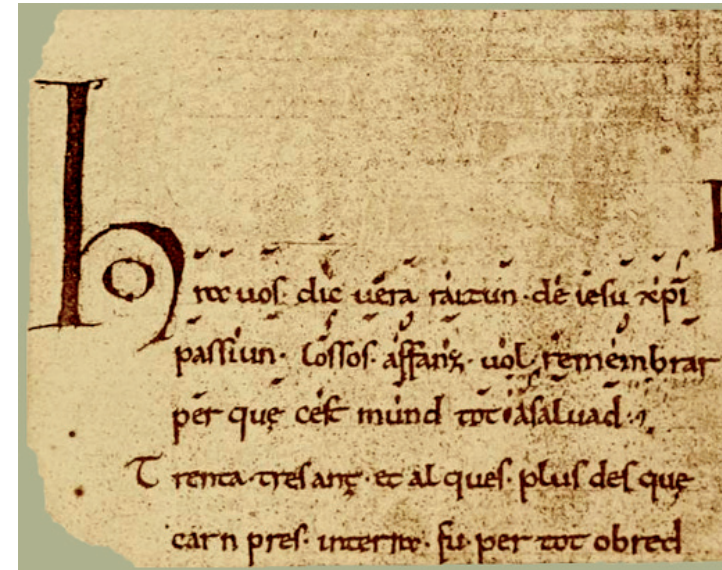 hora vos dic vera raizun· de iesu xp̄i
passiun· lossos· affanz· uol remembrar
per que cest mund tot a saluad·
Trenta tres anz· et al ques· plus des que
carn pres· in terra· fu· per tot obred